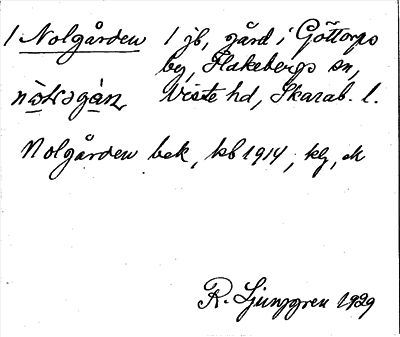 1 Nolgården 1 jb, gård i Göttorps
by, Flakebergs sn,
Viste hd, Skarab. l.
Nolgården bek, kb 1914, kg, ek
R. Ljunggren 1929